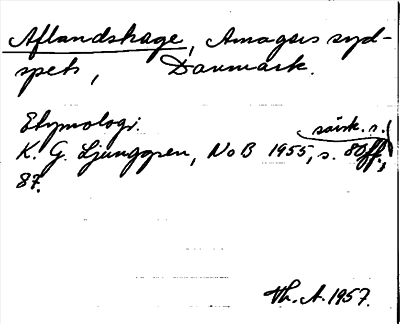 Aflandshage, Amagers syd-
spets, Danmark.
Etymologi.
särsk. s.
K. G. Ljunggren, NoB 1955, s. 80ff.,
87.
Th. A. 1957.